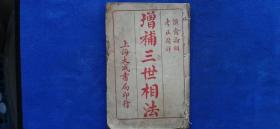 增補三世相法
上海大成書局印行